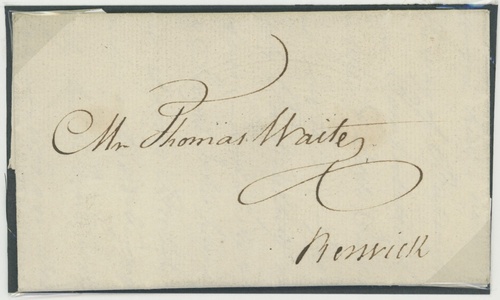 Mr Thomas Waite
Berwick